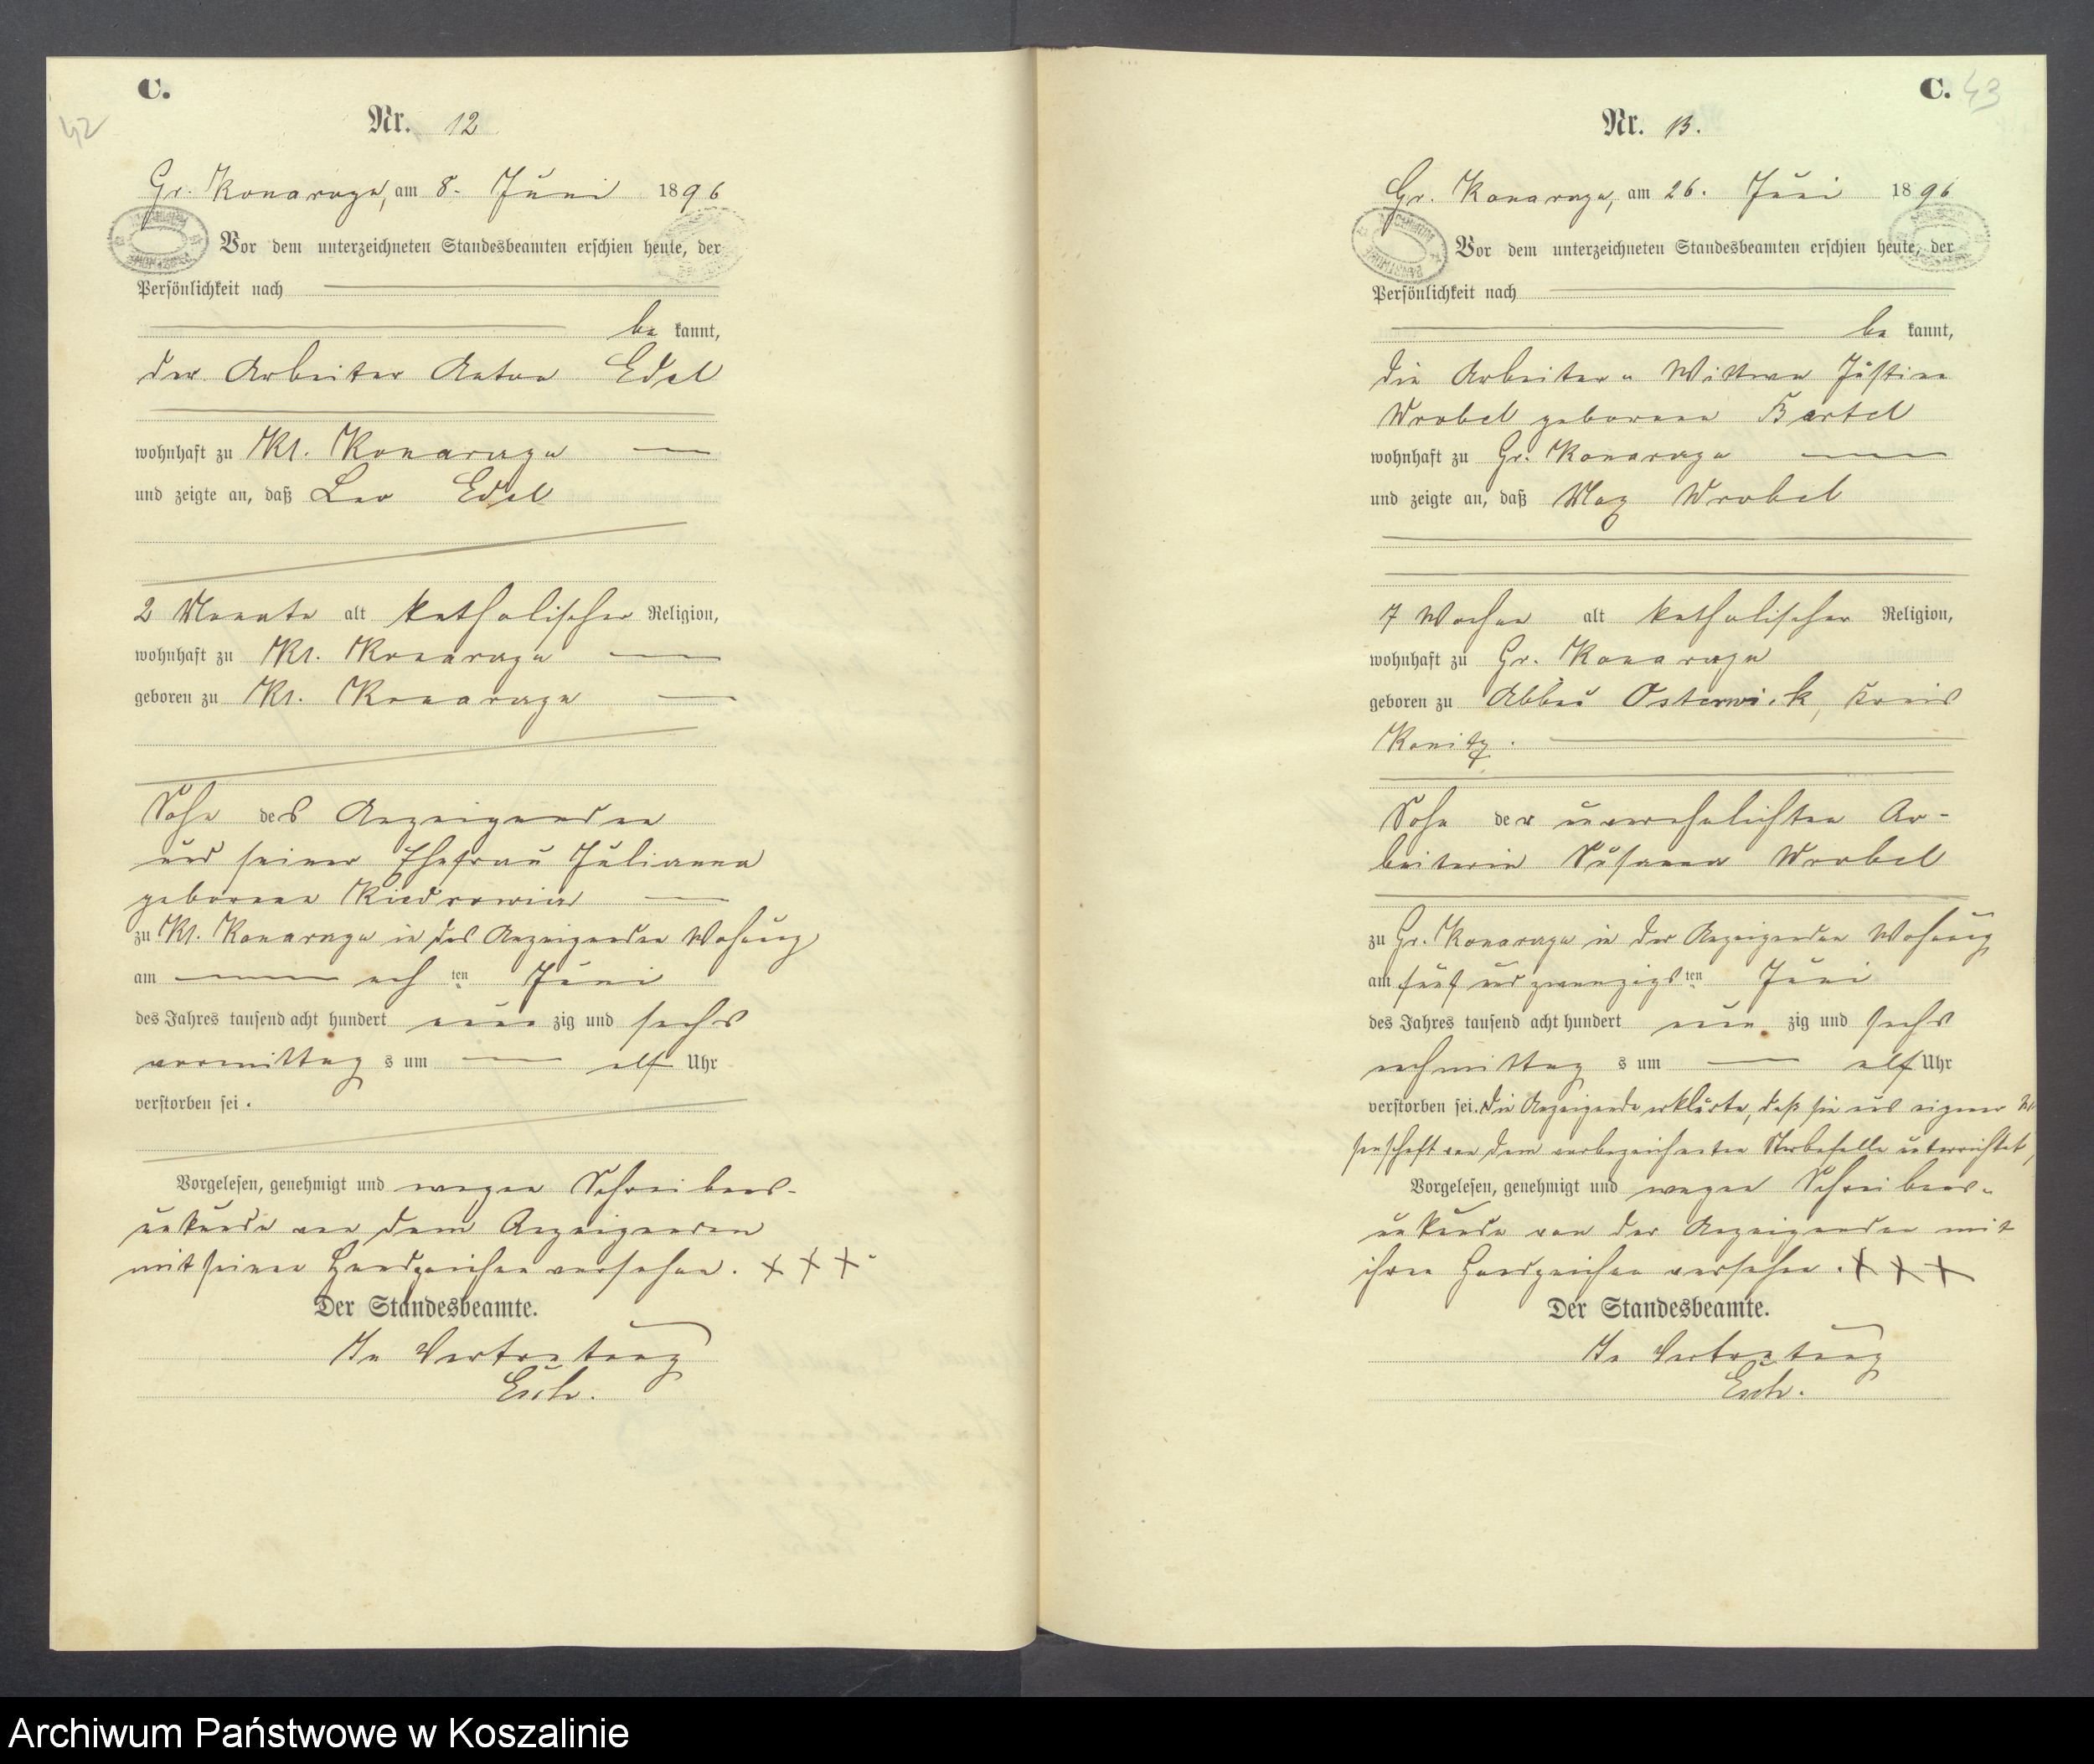 C.
42
Nr. 12
Gr. Konarczyn, am 8. Juni 1896
Vor dem unterzeichneten Standesbeamten erschien heute, der
Persönlichkeit nach
be kannt,
der Arbeiter Anton Edel
wohnhaft zu Kl. Konarczyn
und zeigte an, daß Leo Edel
2 Monate alt katholischer Religion,
wohnhaft zu Kl. Konarczyn
geboren zu Kl. Konarczyn
Sohn des Anzeigenden
und seiner Ehefrau Julianna
geborenen
zu Kl. Konarczyn in des Anzeigenden Wohnung
am ach ten Juni
des Jahres tausend acht hundert neun zig und sechs
vormittag s um elf Uhr
verstorben sei.
Vorgelesen, genehmigt und wegen Schreibens-
unkunde von dem Anzeigenden
mit seinen Handzeichen versehen. + + +
Der Standesbeamte.
In Vertretung
C. 43
Nr. 13.
Gr. Konarczyn, am 26. Juni 1896
Vor dem unterzeichneten Standesbeamten erschien heute, der
Persönlichkeit nach
be kannt,
die Arbeiter- Wittwe Justine
Wrobel geborene Bartel
wohnhaft zu Gr. Konarczyn
und zeigte an, daß Max Wrobel
7 Wochen alt katholischer Religion,
wohnhaft zu Gr. Konarczyn
geboren zu Abbau Osterwick, Kreis
Konitz.
Sohn der unverehelichten Ar-
beiterin Susanna Wrobel
zu Gr. Konarczyn in der Anzeigenden Wohnung
am fünf und zwanzigs ten Juni
des Jahres tausend acht hundert neun zig und sechs
nachmittag s um elf Uhr
verstorben sei. Die Anzeigende erklärte, daß sie aus eigener Wis-
senschaft von dem vorbezeichneten Sterbefalle unterrichtet,
Vorgelesen, genehmigt und wegen Schreibens-
unkunde von der Anzeigenden mit
ihren Handzeichen versehen. + + +
Der Standesbeamte.
In Vertretung
Archiwum Państwowe w Koszalinie